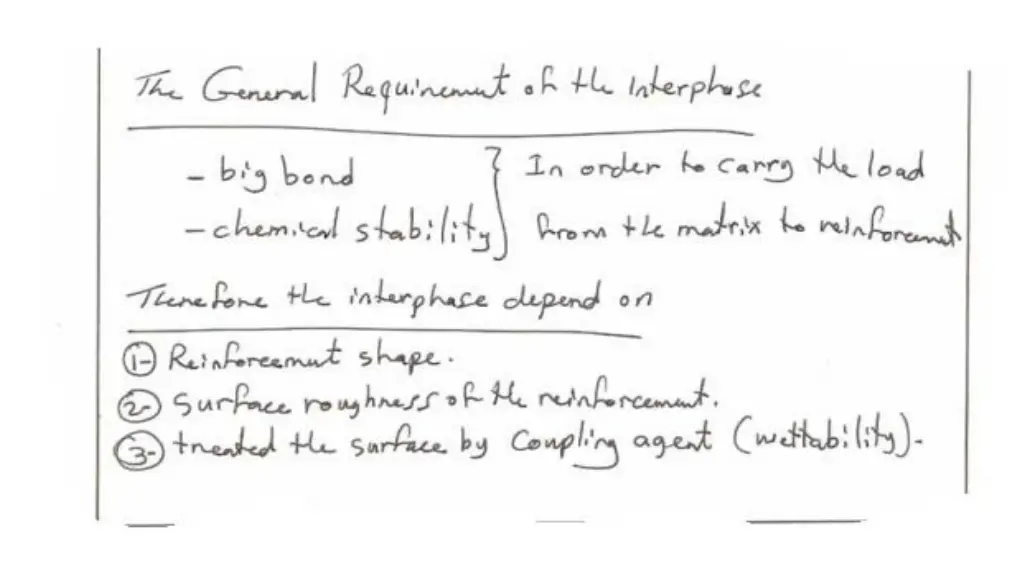 The General Requirement of the Interphase
- big bond } In order to carry the load
- chemical stability } from the matrix to reinforcement
Therefore the interphase depend on
1- Reinforcement shape.
2- Surface roughness of the reinforcement.
3- treated the surface by Coupling agent (wettability).